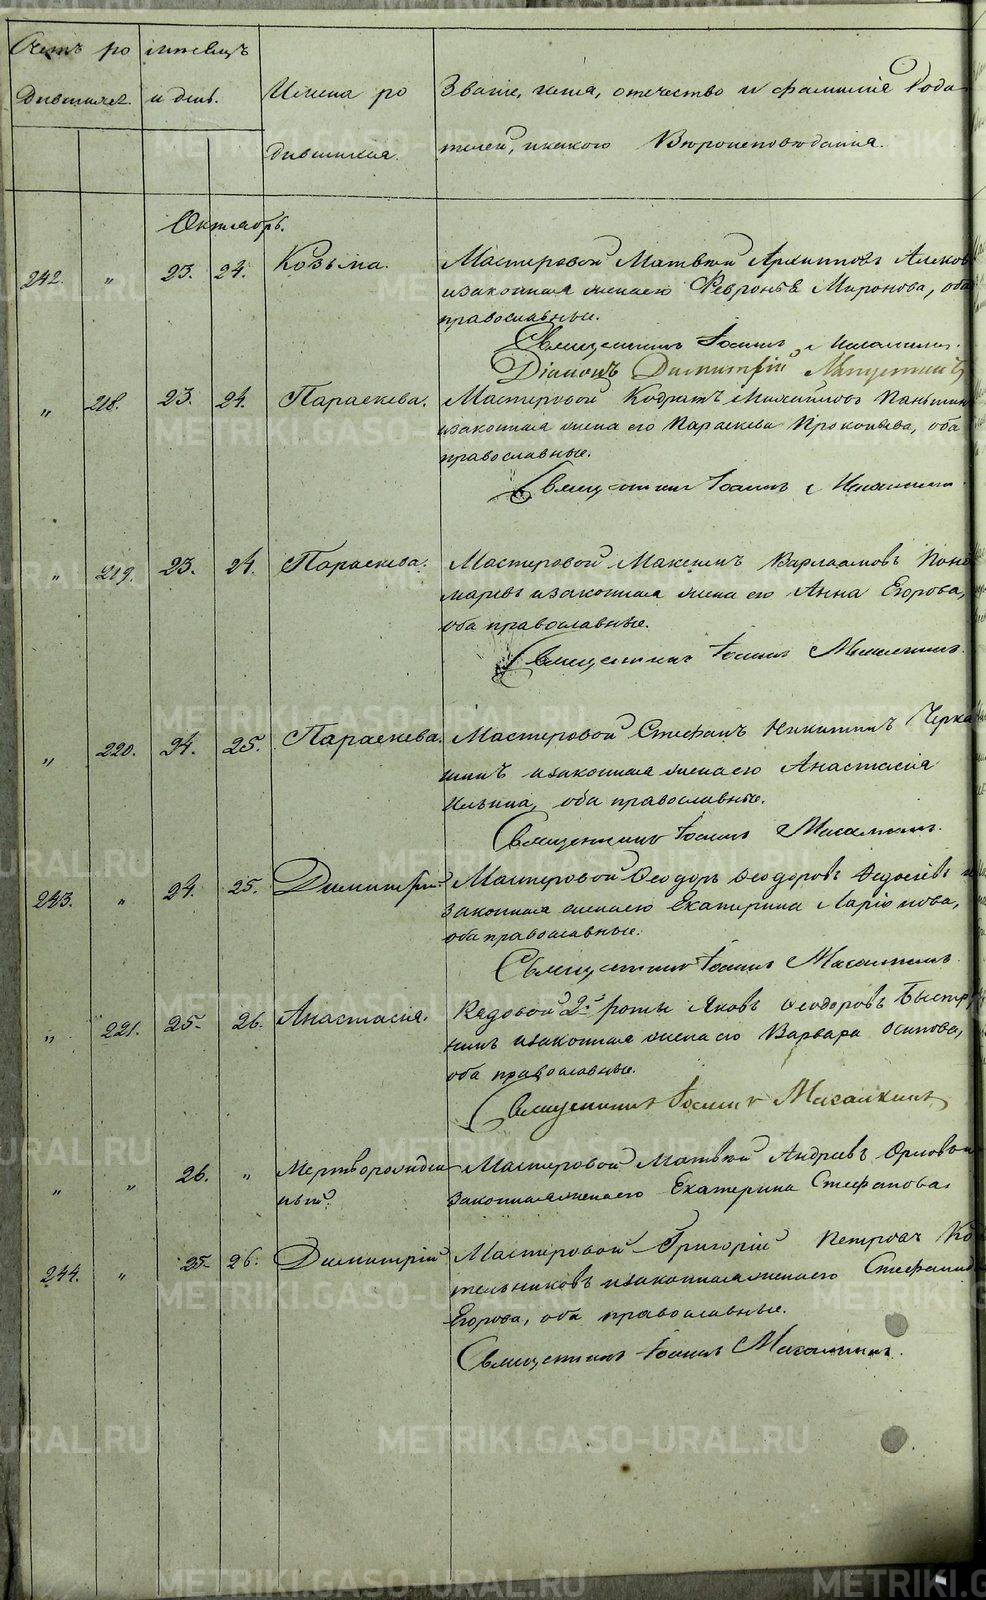 Счетъ ро мѣсяцъ
дившихся. и день. Имена ро Званіе, имя, отечество и фамилія Роди
дившихся. телей, и какого Вѣроисповѣданія.
Октябрь.
242. " 23. 24. Козьма. Мастеровой Матвей Архиповъ
и законная жена его Февронья Миронова, оба
православные.
Священникъ Іоаннъ
Діаконъ Димитрій
" 218. 23. 24. Параскева. Мастеровой Кодратъ Михайловъ Паньшин
и законная жена его Параскева Прокопьева, оба
православные.
Священникъ Іоаннъ
" 219. 23. 24. Параскева. Мастеровой Максимъ Варлаамовъ Поно
маревъ и законная жена его Анна Егорова,
оба православные.
Священникъ Іоаннъ
" 220. 24. 25. Параскева. Мастеровой Стефанъ Никитинъ Черка
шинъ и законная жена его Анастасія
Ильина, оба православные.
Священникъ Іоаннъ
243. " 24. 25. Димитрій. Мастеровой Ѳеодоръ Ѳеодоровъ Ѳедосѣевъ и
законная жена его Екатерина Ларіонова,
оба православные.
Священникъ Іоаннъ
" 221. 25. 26. Анастасія. Рядовой 2й роты Яковъ Ѳеодоровъ Быстр
нинъ и законная жена его Варвара Осипова,
оба православные.
Священникъ Іоаннъ
" " 26. " Мертворожден Мастеровой Матвей Андреевъ Орловъ и
ный. законная жена его Екатерина Стефанова.
244. " 25. 26. Димитрій Мастеровой Григорій Петровъ Ко
тельниковъ и законная жена его Стефанида
Егорова, оба православные.
Священникъ Іоаннъ
METRIKI.GASO-URAL.RU